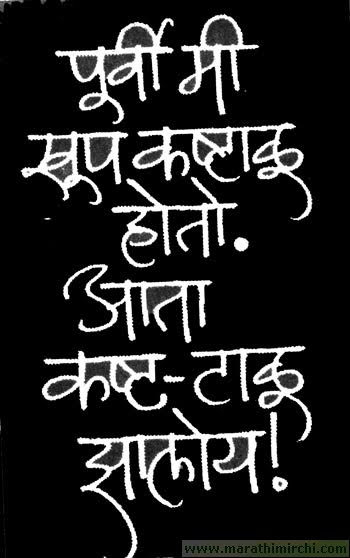 पूर्वी मी
खूप कष्टाळू
होतो.
आता
कष्ट-टाळू
झालोय!
www.marathimirchi.com